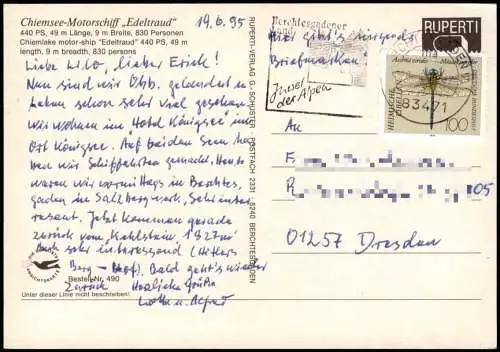 Chiemsee-Motorschiff „Edeltraud"
440 PS, 49 m Länge, 9 m Breite, 830 Personen
Chiemlake motor-ship "Edeltraud" 440 PS, 49 m
length, 9 m breadth, 830 persons
19.6.95
Liebe Lilo, lieber Erich!
Nun sind wir gelandet u.
haben schon sehr viel gesehen.
Wir wohnen im Hotel Königssee im
Ort Königssee. Auf beiden Seen haben
wir Schiffahrten gemacht. Heute
waren wir vormittags in Berchtes-
gaden im Salzbergwerk. Sehr inter-
essant. Jetzt kommen gerade
zurück vom Kehlstein 1827 m
Auch sehr interessand (Hitlers
Berg - hof). Bald geht's wieder
zurück Herzliche Grüße
Lotte u. Alfred
Bestell-Nr. 490
Unter dieser Linie nicht beschreiben!
RUPERTI-VERLAG G. SCHUSTER POSTFACH 2331 8240 BERCHTESGADEN
Berchtesgadener
Land
Insel
der Alpen
Hier gibt's nirgends
Briefmarken!
RUPERTI
83471
100
An
F
R 05
01257 Dresden